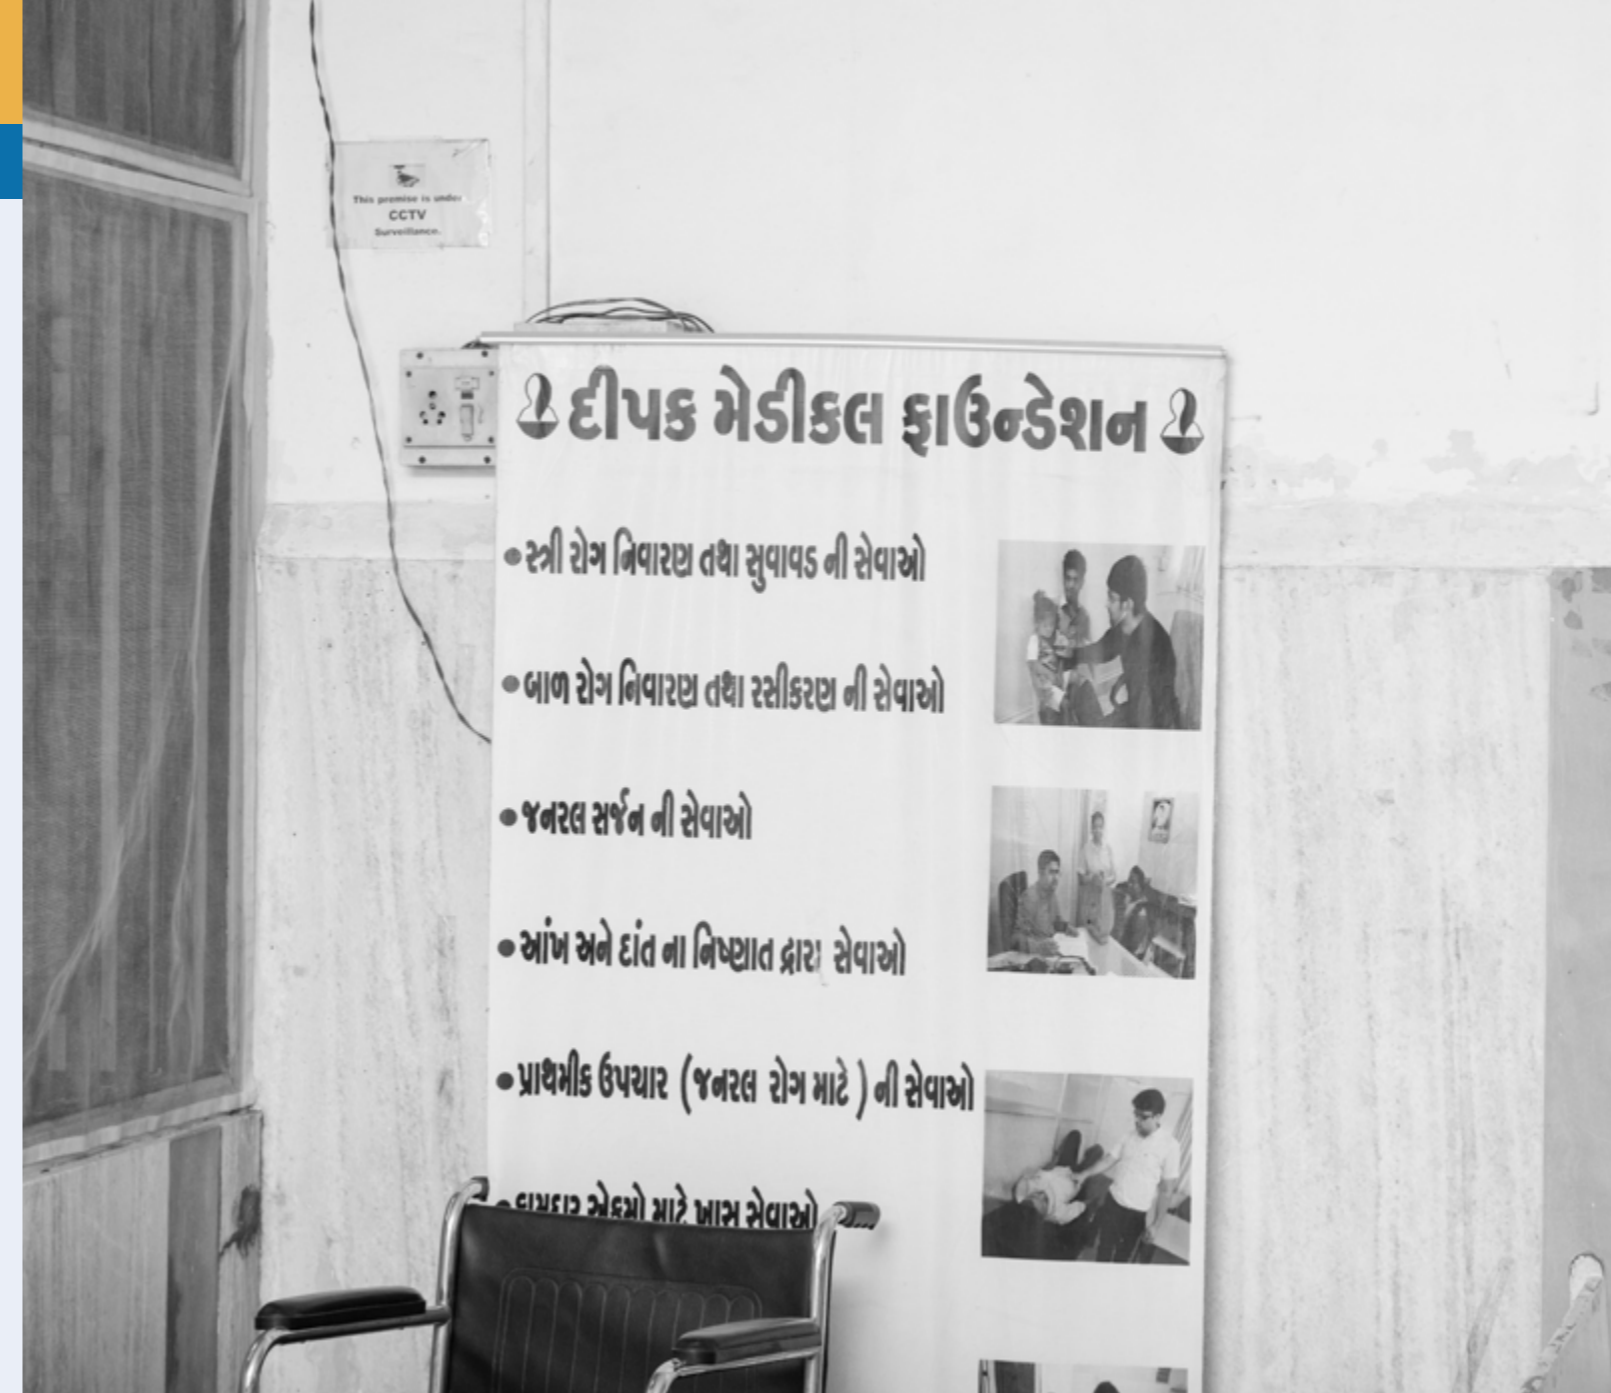 This premise is under
CCTV
Surveillance.
દીપક મેડીકલ ફાઉન્ડેશન
•સ્ત્રી રોગ નિવારણ તથા સુવાવડ ની સેવાઓ
•બાળ રોગ નિવારણ તથા રસીકરણ ની સેવાઓ
•જનરલ સર્જન ની સેવાઓ
•આંખ અને દાંત ના નિષ્ણાત દ્રારા સેવાઓ
•પ્રાથમીક ઉપચાર (જનરલ રોગ માટે ) ની સેવાઓ
•કામદાર એકમો માટે ખાસ સેવાઓ